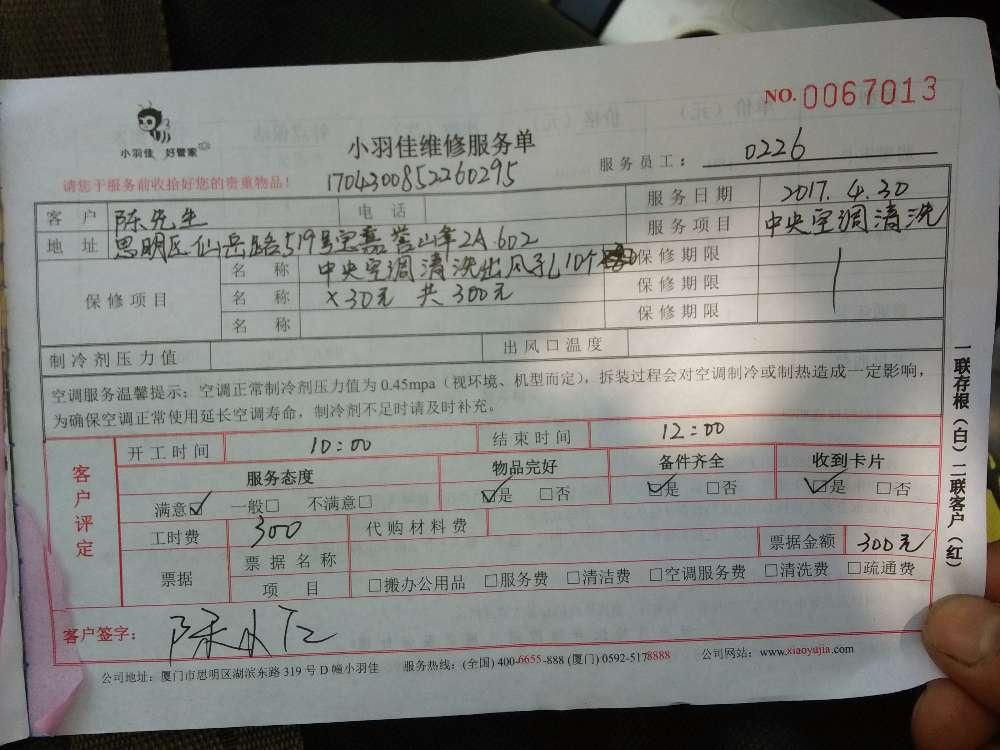 NO. 0067013
小羽佳 好管家
小羽佳维修服务单
服务员工： 0226
请您于服务前收拾好您的贵重物品！
1704300852260295
客户 陈先生 电话 服务日期 2017.4.30
地址 思明区仙岳路519号宝嘉誉山峯2A 602 服务项目 中央空调清洗
保修项目 名称 中央空调清洗出风孔10个 保修期限
名称 ×30元 共300元 保修期限
名称 保修期限
制冷剂压力值 出风口温度
空调服务温馨提示：空调正常制冷剂压力值为 0.45mpa（视环境、机型而定），拆装过程会对空调制冷或制热造成一定影响，
为确保空调正常使用延长空调寿命，制冷剂不足时请及时补充。
客户评定
开工时间 10:00 结束时间 12:00
服务态度 物品完好 备件齐全 收到卡片
满意☑ 一般□ 不满意□ ☑是 □否 ☑是 □否 ☑是 □否
工时费 300 代购材料费
票据 票据名称 票据金额 300元
项目 □搬办公用品 □服务费 □清洁费 □空调服务费 □清洗费 □疏通费
客户签字：
公司地址：厦门市思明区湖滨东路 319 号 D 幢小羽佳 服务热线：(全国) 400-6655-888 (厦门) 0592-5178888 公司网站：www.xiaoyujia.com
一联存根（白）二联客户（红）